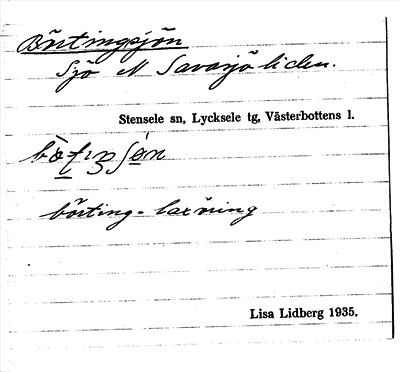 Börtingsjön
Sjö N Savasjöliden.
Stensele sn, Lycksele tg, Västerbottens l.
börting - laxöring
Lisa Lidberg 1935.